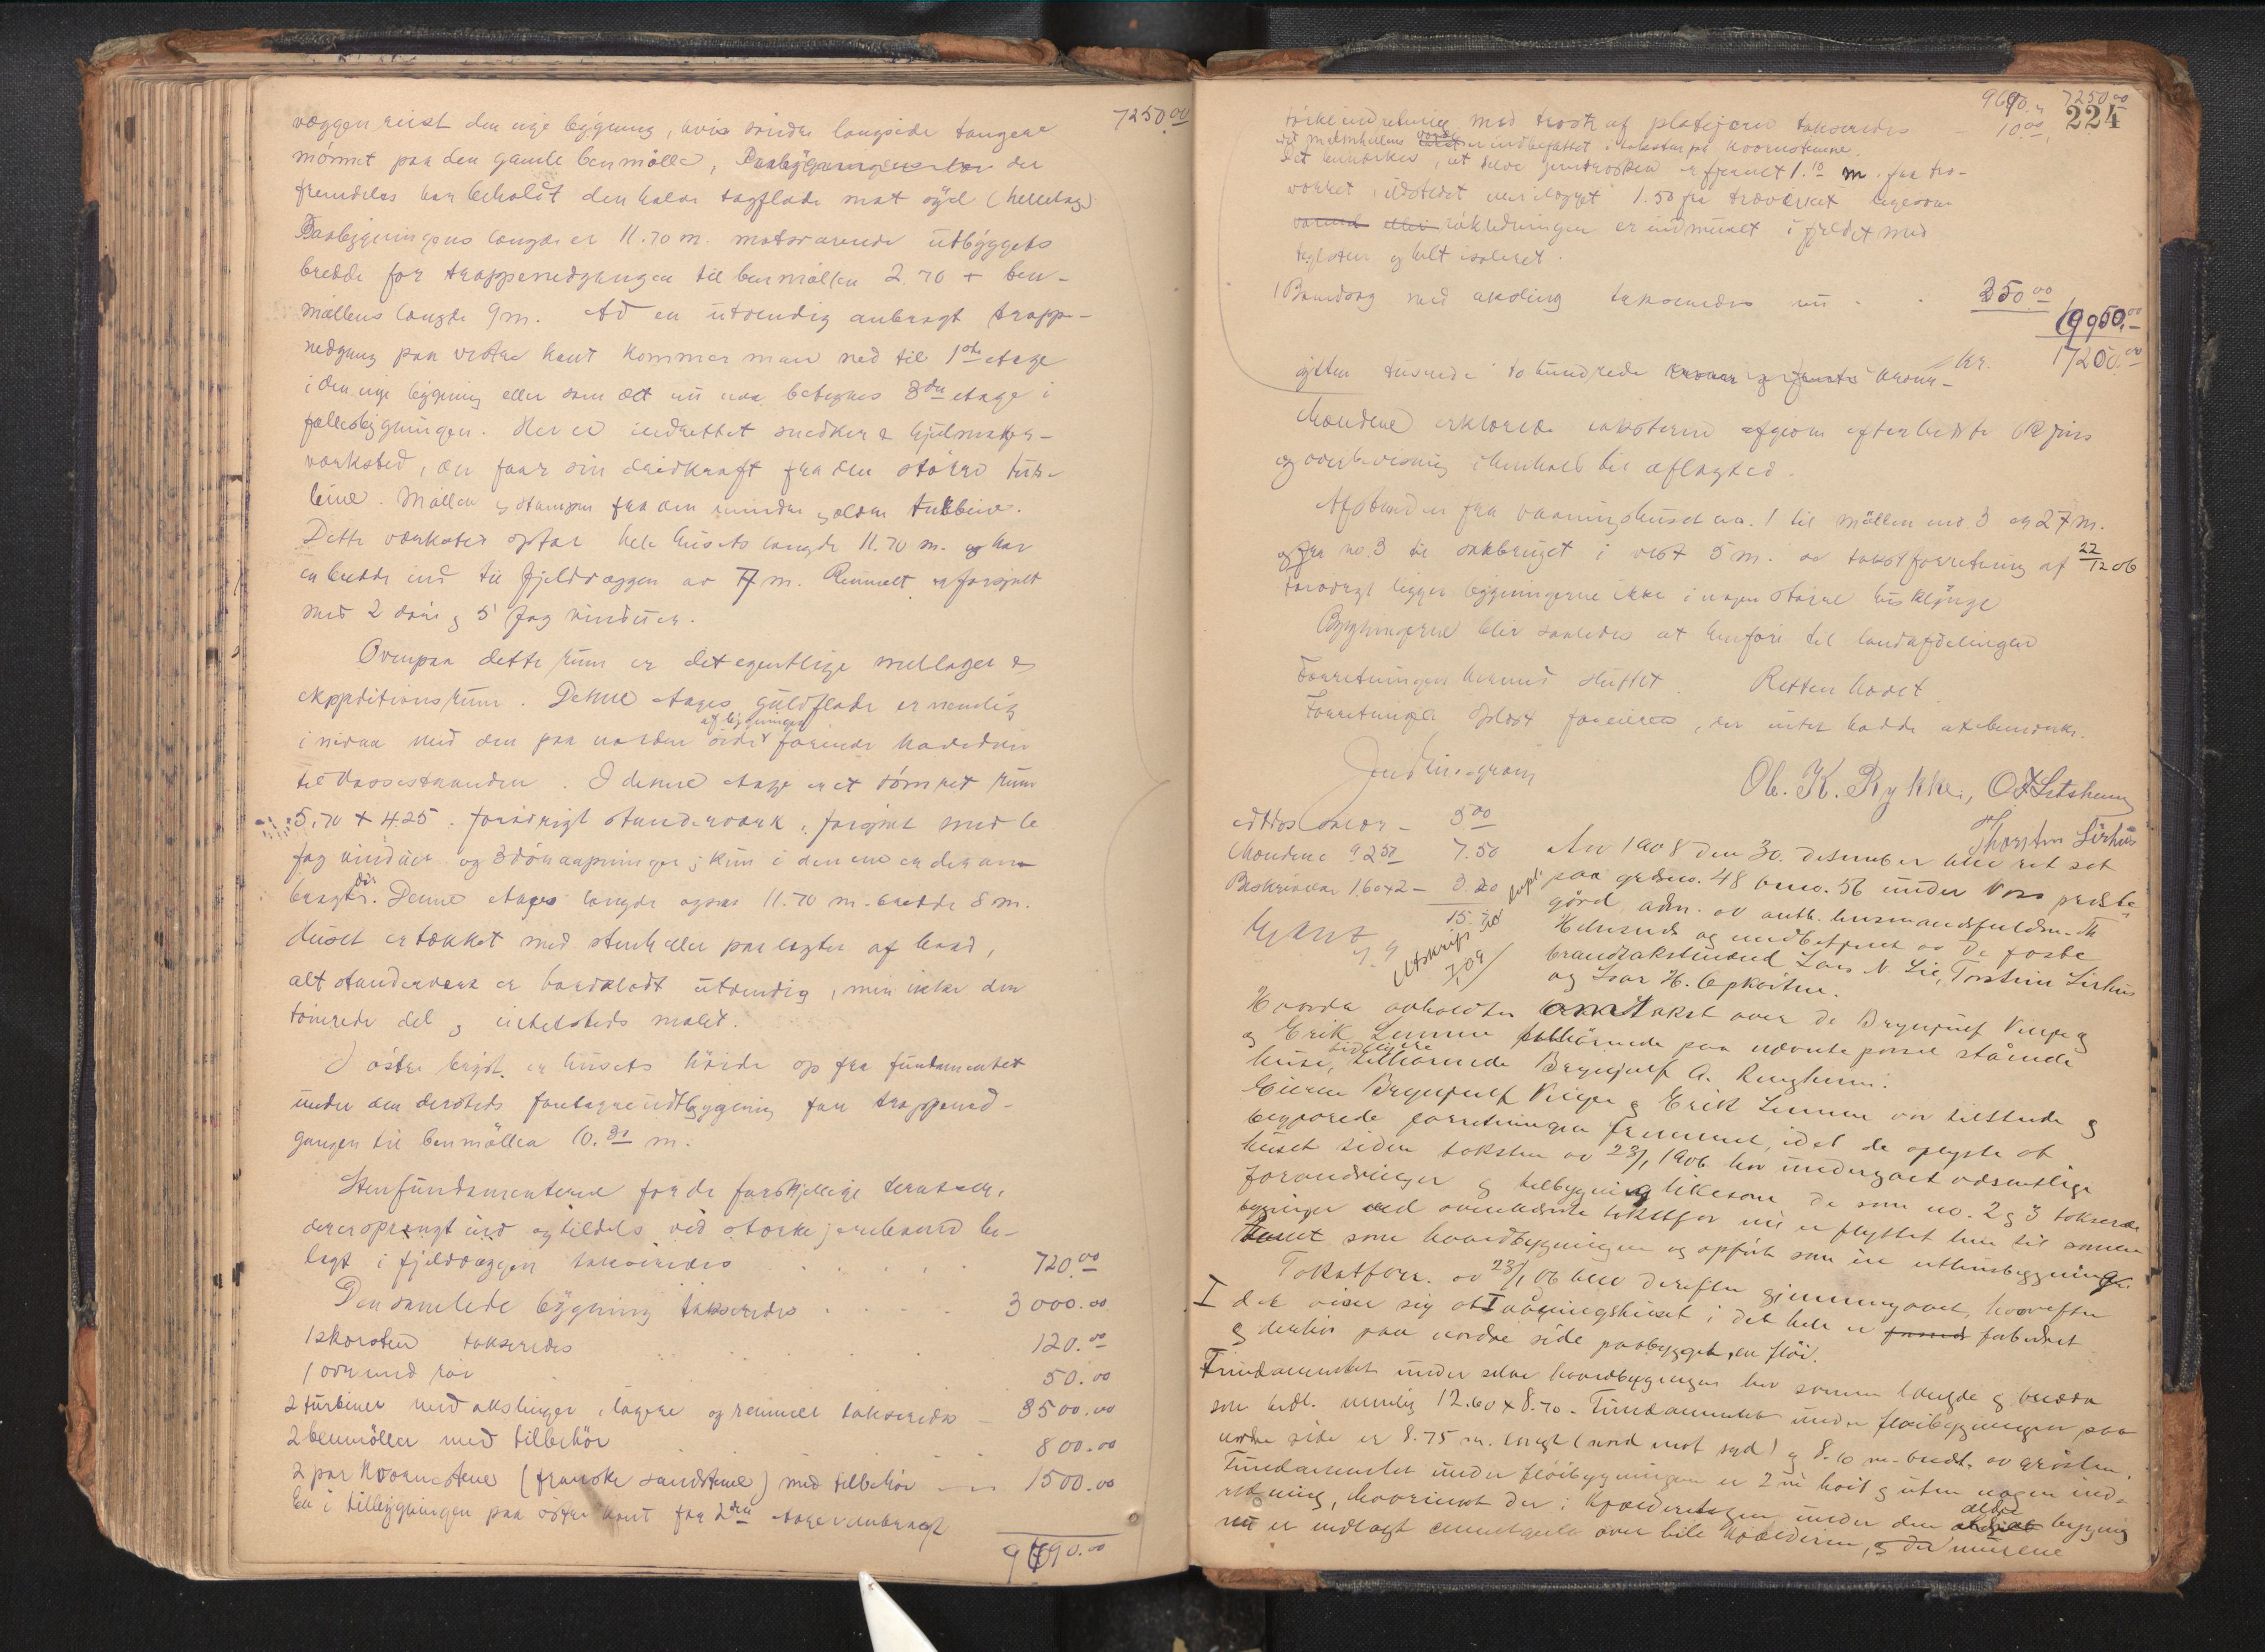 7250.00
væggen reist den nye bygning, hvis søndre langside tangerer
mønnet paa den gamle benmølle, der
fremdeles har beholdt den halve tagflade mot syd (helletag)
Paabygningens længde er 11.70 m. motsvarende utbyggets
bredde for trappenedgangen til benmøllen 2.70 + ben-
møllens længde 9 m. Ad en utvendig anbragt trappe-
nedgang paa vestre kant kommer man ned til 1ste etage
i den nye bygning eller som det nu maa betegnes 3die etage i
fællesbygningen. Her er indrettet snedker & hjulmaker-
verksted, der faar sin drivkraft fra den større tur-
bine. Møllen og stampen fra den mindre og ældre turbine.
Dette værksted optar hele husets længde 11.70 m. og har
en bredde ind til fjeldvæggen av 7 m. Rummet er forsynt
med 2 døre og 5 fag vinduer.
Ovenpaa dette rum er det egentlige mellager &
ekspeditionsrum. Denne etages gulvflade er nemlig
af bygningen
i nivaa med den paa nordre side førende hoveddør
til Vossestranden. I denne etage er et tømret rum
5.70 + 4.25. forøvrigt stenderverk, forsynt med 6
fag vinduer og 3 døraapninger; kun i den ene er der an-
bragt dør. Denne etages længde ogsaa 11.70 m. bredde 8 m.
Huset er tækket med stenheller paa legter af bord,
alt stenderverk er bordklædt utvendig, men ikke den
tømrede del og intetsteds malet.
I østre brøst er husets høide op fra fundamentet
under den dersteds foretagne utbygning for trappened-
gangen til benmøllen 10.30 m.
Stenfundamenterne for de forskjellige terasser,
derersprængt ind og tildels ved sterke jernbaand be-
lagt i fjeldvæggen takseredes 720.00
Den samlede bygning takseredes 3000.00
1 skorsten takseredes 120.00
1 ovn med rør 50.00
2 turbiner med akslinger, lagere og remmer takseredes 3500.00
2 benmøller med tilbehør 800.00
2 par kvernstene (franske sandstene) med tilbehør 1500.00
En i tilbygningen paa østre kant fra 2den etage anbragt
9690.00
9690.00 7250.00
224
tørkeindretning med trosk af platejern takseredes 10.00
er indbefattet i taksten paa kvernstenene.
Det bemerkes, at selve jerntrosken er fjernet 1.10 m. fra træ-
verket, ildstedet 1.50 fra træverket ligesom
røkledningen er indmuret i fjeldet med
teglsten og helt isoleret.
1 Baandsag med aksling takseredes nu 250.00
9950.00
kr. 17200.00
sytten tusende to hundrede kroner
Mændene erklærede taksterne afgivne efter bedste skjøn
og overbevisning i henhold til aflagt ed.
Afstanden fra vaaningshuset no. 1 til møllen no. 3 er 27 m.
og fra no. 3 til sakbruget i vest 5 m. av takstforretning af 22/12 06
forøvrigt ligger bygningerne ikke i nogen større husklynge
Bygningerne blir saaledes at henføre til landafdelingen
Forretningen hermed sluttet. Retten hævet.
Forretningen oplæst for eieren, der intet hadde at bemerke.
Ol. K. Rykke, O. Setsheim
Thorsten Lirhus
5.00
Mændene á 2.50 7.50
Beskrivelse 1.60 x 2 - 3.20
15.70
Utskrift
Aar 1908 den 30. desember blev ret sat
paa grdsno. 48 brno. 56 under Voss preste-
gjeld adm. av auth. lensmandsfuldm. Th
Helmrud og medbetjent av de faste
brandtakstmænd Lars N. Lie, Torstein Lirhus
og Ivar H. Opkvitne.
Hvorda avholdtes omtakst over de Brynjulf Vinje og
og Erik Lemme tilhørende paa nævnte parsel stående
huse, tidligere tilhørende Brynjulf A. Ringheim.
Eierne Brynjulf Vinje og Erik Lemme var tilstede og
begjærede forretningen fremmet, idet de oplyste at
huset siden taksten av 23/1 1906 har undergaaet væsentlige
forandringer og tilbygning likesom de som no. 2 og 3 takserede
bygninger ved ovennævnte takstforr nu er flyttet hen til samme
tomt som hovedbygningen og opført som en uthusbygning.
Takstforr. av 23/1 06 blev derefter gjennemgaaet, hvorefter
I det viser sig at I våningshuset i det hele er forbedret
og derhos paa nordre side paabygget en fløi.
Fundamentet under selve hovedbygningen har samme længde og bredde
som bedt. nemlig 12.60 x 8.70. Fundamentet under fløibygningen paa
nordre side er 8.75 m. langt (nord mot syd) og 8.10 m. bredt av gråsten.
Fundamentet under fløibygningen er 2 m høit og uten nogen ind-
retning, hvorimot der i kjælderetagen under den ældre bygning
nu er indlagt cementgulv over hele kjælderen, og der murene